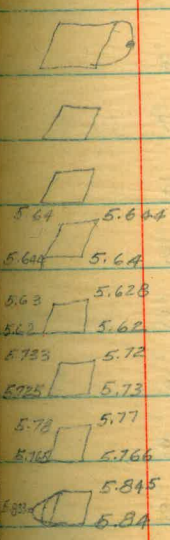 5.64 5.644
5.644 5.64
5.63 5.628
5.62 5.62
5.733 5.72
5.725 5.73
5.78 5.77
5.765 5.766
5.845
5.84